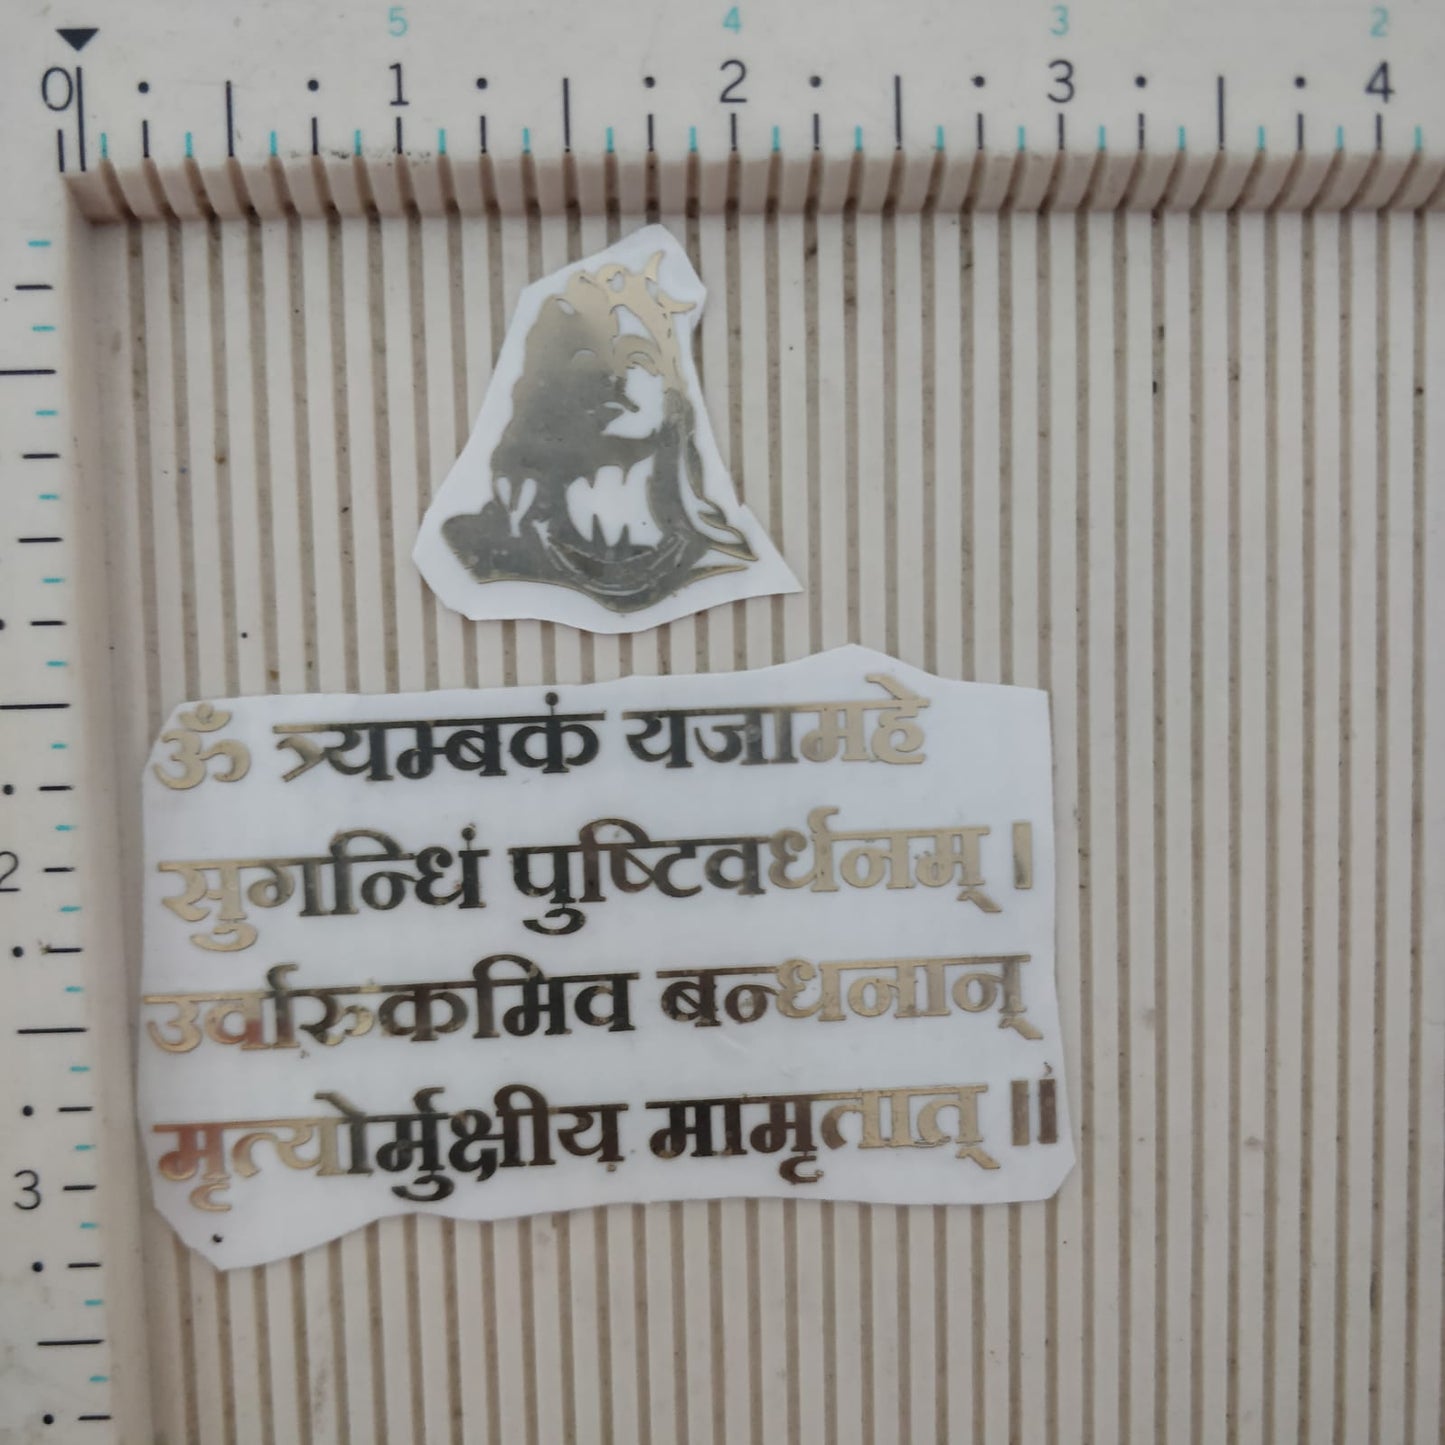 5 4 3 2
0 1 2 3 4
ॐ त्र्यम्बकं यजामहे
सुगन्धिं पुष्टिवर्धनम् ।
2
उर्वारुकमिव बन्धनान्
मृत्योर्मुक्षीय मामृतात् ॥
3